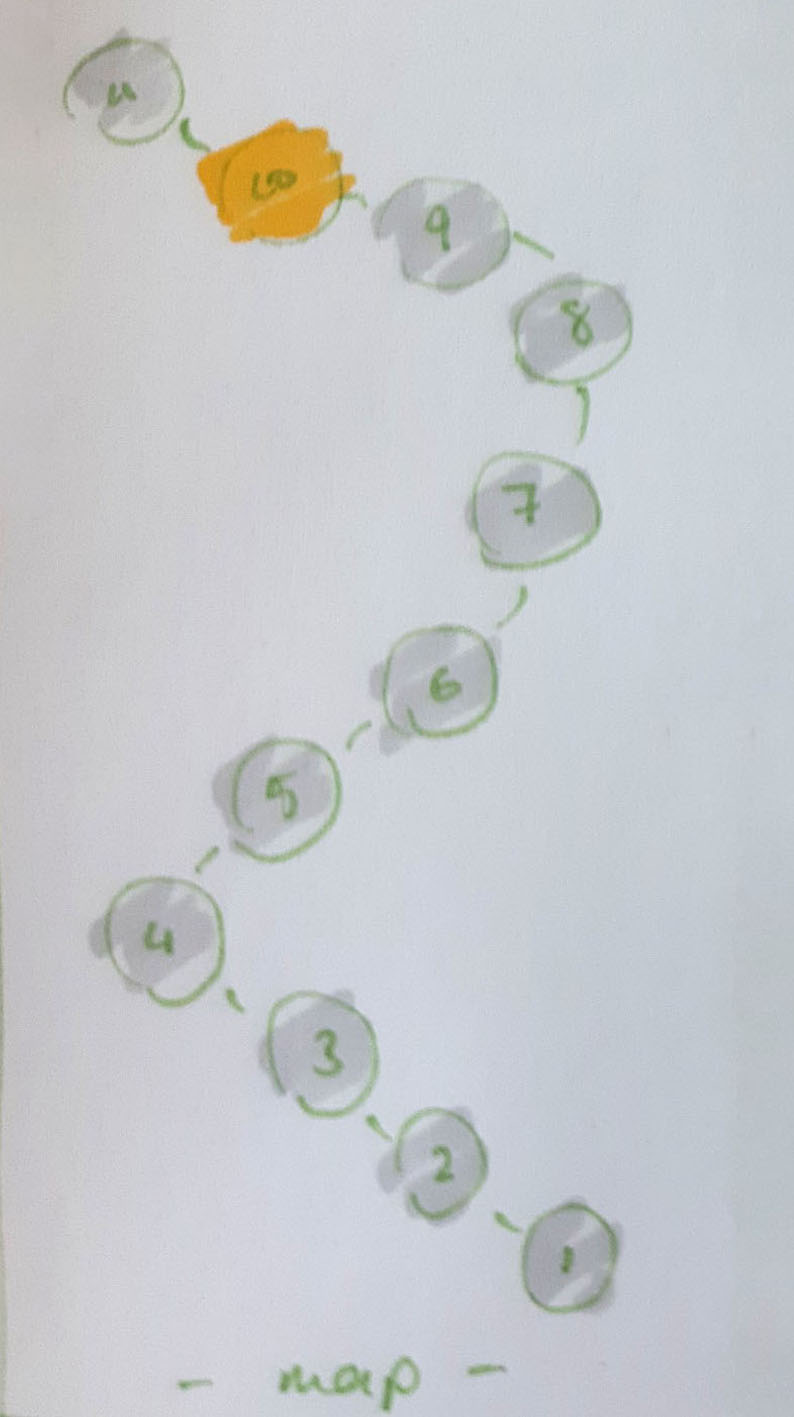 11
10
9
8
7
6
5
4
3
2
1
- map -